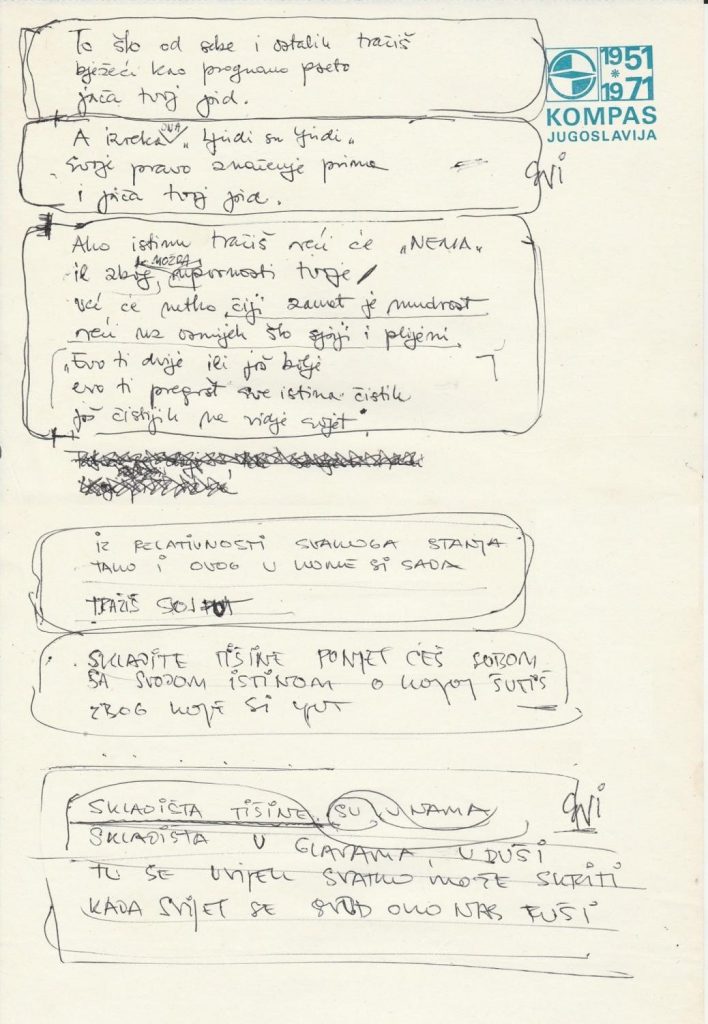 To što od sebe i ostalih tražiš
bježeći kao prognano pseto
jača tvoj jid.
1951
*
1971
KOMPAS
JUGOSLAVIJA
A izreka OVA „ljudi su ljudi"
svoje pravo značenje prima
i jača tvoj jid.
svi
Ako istinu tražiš reći će „NEMA"
il zbog MOŽDA upornosti tvoje
već će netko čiji zanat je mudrost
reći uz osmijeh što sjaji i plijeni.
„Evo ti dvije ili još bolje
evo ti pregršt sve istina čistih
još čistijih ne vidje svijet"
IZ RELATIVNOSTI SVAKOGA STANJA
TAKO I OVOG U KOME SI SADA
TRAŽIŠ SVOJ PUT
SKLADIŠTE TIŠINE PONJET ĆEŠ SOBOM
SA SVOJOM ISTINOM O KOJOJ ŠUTIŠ
ZBOG KOJE SI LJUT
SKLADIŠTA TIŠINE SU U NAMA
svi
SKLADIŠTA U GLAVAMA, U DUŠI
TU SE UVIJEK SVATKO MOŽE SKRITI
KADA SVIJET SE SVUD OKO NAS RUŠI